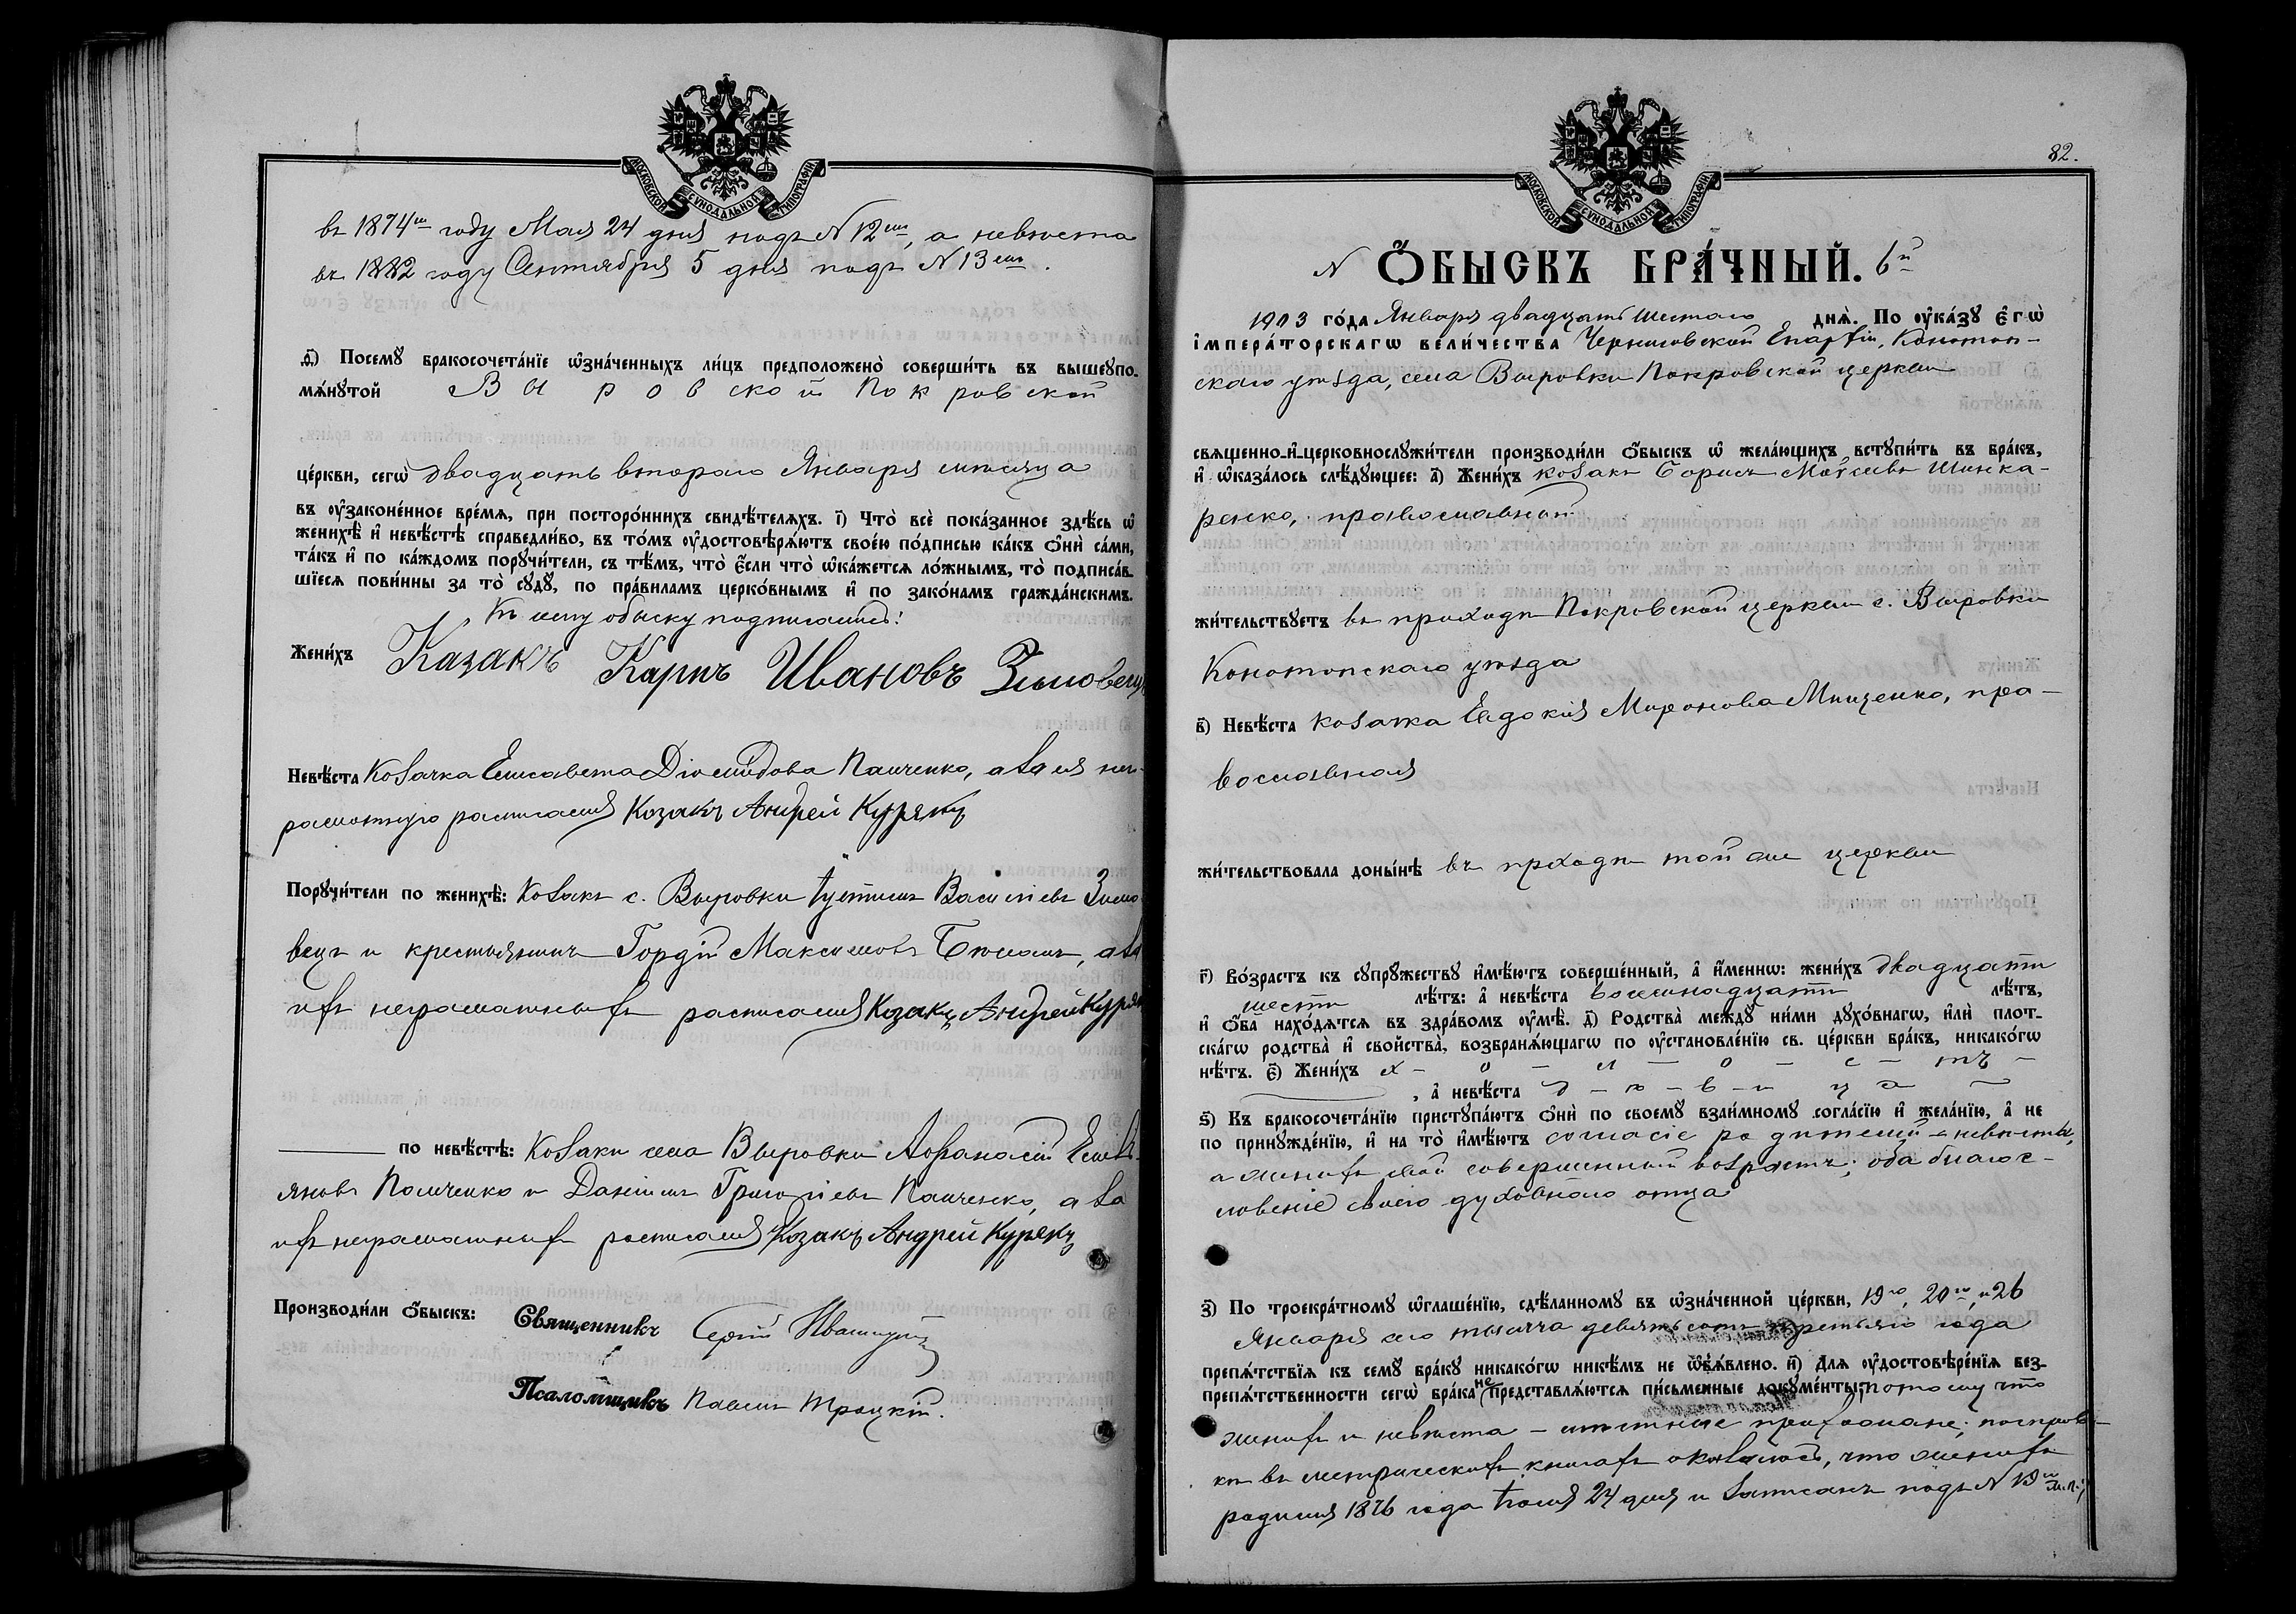 МОСКОВСКОЙ СУНОДАЛЬНОЙ ТИПОГРАФІИ
въ 1874м году Мая 24 дня подъ N 12мъ, а невѣста
въ 1882 году Сентября 5 дня подъ N 13мъ.
Посемꙋ бракосочета́нїе ѡ҆зна́ченныхъ ли́цъ предположено̀ соверши́ть въ вышеꙋпо-
мѧ́нꙋтой Выровской Покровской
це́ркви, сегѡ̀ двадцать второго Января мѣсяца
въ ᲂу҆законе́нное вре́мѧ, при посторо́ннихъ свидѣ́телѧхъ. і҃) Что̀ всѐ пока́занное здѣ́сь ѡ҆
женихѣ̀ и҆ невѣ́стѣ справедли́во, въ то́мъ ᲂу҆достовѣрѧ́ютъ свое́ю по́дписью ка́къ ѻ҆нѝ са́ми,
та́къ и҆ по ка́ждомъ порꙋчи́тели, съ тѣ́мъ, что̀ є҆́сли что̀ ѡ҆ка́жетсѧ ло́жнымъ, то̀ подписа́в-
шїесѧ пови́нны за то̀ сꙋдꙋ̀, по пра́виламъ церко́внымъ и҆ по зако́намъ гражда́нскимъ.
Къ сему обыску подписались:
Жени́хъ Казакъ Карпъ Ивановъ Зимовецъ
Невѣ́ста козачка Елисавета Діомидова Панченко, а за ея негра-
мотную росписался Козакъ Андрей Куряку
Порꙋчи́тели по женихѣ̀: козакъ с. Выровки Іустинъ Василіевъ Зимо
вецъ и крестьянинъ Гордій Максимовъ, а за
ихъ неграмотныхъ росписался Козакъ Андрей Куряк
по невѣ́стѣ: козаки села Выровки Аѳанасій Емель-
яновъ Панченко и Даніилъ Григоріевъ Панченко, а за
ихъ неграмотныхъ росписался Козакъ Андрей Куряку
Производи́ли ѻ҆́быскъ: Священникъ Сергій
Псаломщикъ Павелъ Троцкій.
82.
МОСКОВСКОЙ СУНОДАЛЬНОЙ ТИПОГРАФІИ
N Ѻ҆́БЫСКЪ БРА́ЧНЫЙ. 6й
1903 го́да Января двадцать шестого днѧ̀. По ᲂу҆ка́зꙋ є҆гѡ̀
і҆мпера́торскагѡ вели́чества Черниговской Епархіи, Конотоп-
скаго уѣзда, села Выровки Покровской церкви
свѧщенно-и҆-церковнослꙋжи́тели производи́ли ѻ҆́быскъ ѡ҆ жела́ющихъ встꙋпи́ть въ бра́къ,
и҆ ѡ҆каза́лось слѣ́дꙋющее: а҃) Жени́хъ козакъ Борисъ Моѵсеевъ Шинка-
ренко, православный
жи́тельствꙋетъ въ приходѣ Покровской церкви с. Выровки
Конотопскаго уѣзда
в҃) Невѣ́ста козачка Евдокія Миронова Мищенко, пра-
вославная
жи́тельствовала доны́нѣ въ приходѣ той же церкви
г҃) Во́зрастъ къ сꙋпрꙋ́жествꙋ и҆мѣ́ютъ соверше́нный, а҆ и҆́меннѡ: жени́хъ двадцати
шести лѣ́тъ: а҆ невѣ́ста восемнадцати лѣ́тъ,
и҆ ѻ҆́ба нахо́дѧтсѧ въ здра́вомъ ᲂу҆мѣ̀. д҃) Родства̀ междꙋ̀ ни́ми дꙋхо́внагѡ, и҆лѝ плот-
ска́гѡ родства̀ и҆ свойства̀, возбранѧ́ющагѡ по ᲂу҆становле́нїю св. це́ркви бра́къ, никако́гѡ
нѣ́тъ. є҃) Жени́хъ х - о - л - о - с - тъ -
, а҆ невѣ́ста д - ѣ - в - и ц а
ѕ҃) Къ бракосочета́нїю пристꙋпа́ютъ ѻ҆нѝ по своемꙋ̀ взаи́мномꙋ согла́сїю и҆ жела́нїю, а҆ не
по принꙋжде́нїю, и҆ на то̀ и҆мѣ́ютъ согласіе родителей - невѣста,
а женихъ свой совершенный возрастъ; оба благос-
ловеніе своего духовнаго отца
з҃) По троекра́тномꙋ ѡ҆глаше́нїю, сдѣ́ланномꙋ въ ѡ҆зна́ченной це́ркви, 19го, 20го, и 26
Января сего тысяча девятьсотъ третьяго года
препѧ́тствїѧ къ семꙋ̀ бра́кꙋ никако́гѡ никѣ́мъ не ѡ҆б̾ѧ́влено. и҃) Длѧ ᲂу҆достовѣре́нїѧ без-
препѧ́тственности сегѡ̀ бра́ка не представлѧ́ютсѧ пи́сьменные докꙋме́нты: потому что
женихъ и невѣста - мѣстные прихожане; по справ-
кѣ въ метрическихъ книгахъ оказалось, что женихъ
родился 1876 года Іюля 24 дня и записанъ подъ N 19м м.п.;